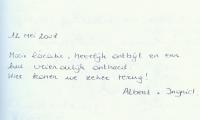 12 mei 2008
Mooie locatie, Heerlijk ontbijt en een
heel vriendelijk onthaal
Hier komen we zeker terug!
Albert + Ingrid.